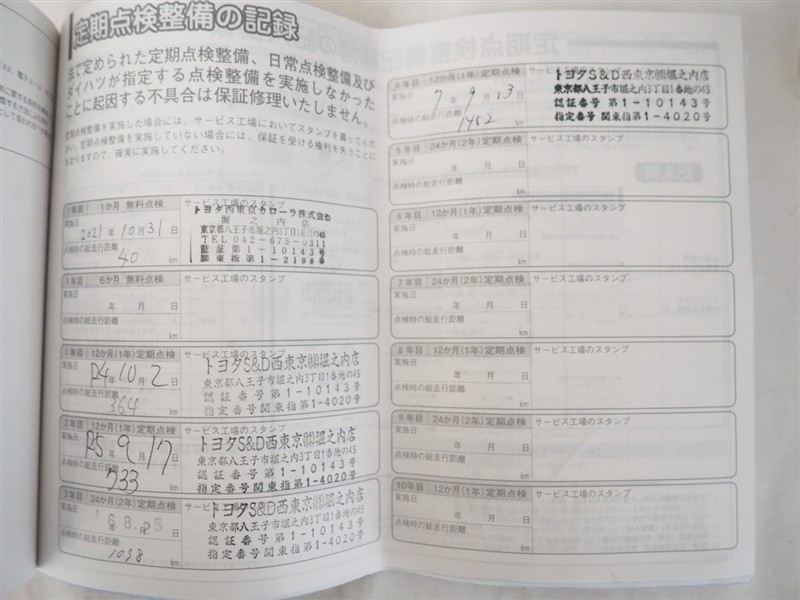 定期点検整備の記録
法で定められた定期点検整備、日常点検整備及び
ダイハツが指定する点検整備を実施しなかった
ことに起因する不具合は保証修理いたしません。
定期点検整備を実施した場合には、サービス工場においてスタンプを貰ってくだ
さい。定期点検整備を実施していない場合には、保証を受ける権利を失うことに
なりますので、確実に実施してください。
1年目 1か月 無料点検 サービス工場のスタンプ
実施日
2021年10月31日
点検時の総走行距離
40 km
トヨタ西東京カローラ株式会社
堀之内店
東京都八王子市堀之内3丁目1番地の45
TEL 042-675-0311
認証第1-10143号
関東指第1-2198号
1年目 6か月 無料点検 サービス工場のスタンプ
実施日
年 月 日
点検時の総走行距離
km
1年目 12か月(1年)定期点検 サービス工場のスタンプ
実施日
R4年10月2日
点検時の総走行距離
364 km
トヨタS&D西東京㈱堀之内店
東京都八王子市堀之内3丁目1番地の45
認証番号 第1-10143号
指定番号 関東指第1-4020号
2年目 12か月(1年)定期点検 サービス工場のスタンプ
実施日
R5 9 17日
点検時の総走行距離
733 km
トヨタS&D西東京㈱堀之内店
東京都八王子市堀之内3丁目1番地の45
認証番号 第1-10143号
指定番号 関東指第1-4020号
3年目 24か月(2年)定期点検 サービス工場のスタンプ
実施日
6 8.25
年 月 日
点検時の総走行距離
1098 km
トヨタS&D西東京㈱堀之内店
東京都八王子市堀之内3丁目1番地の45
認証番号 第1-10143号
指定番号 関東指第1-4020号
4年目 12か月(1年)定期点検 サービス工場のスタンプ
実施日
7年9月13日
点検時の総走行距離
1452 km
トヨタS&D西東京㈱堀之内店
東京都八王子市堀之内3丁目1番地の45
認証番号 第1-10143号
指定番号 関東指第1-4020号
5年目 24か月(2年)定期点検 サービス工場のスタンプ
実施日
年 月 日
点検時の総走行距離
km
6年目 12か月(1年)定期点検 サービス工場のスタンプ
実施日
年 月 日
点検時の総走行距離
km
7年目 24か月(2年)定期点検 サービス工場のスタンプ
実施日
年 月 日
点検時の総走行距離
km
8年目 12か月(1年)定期点検 サービス工場のスタンプ
実施日
年 月 日
点検時の総走行距離
km
9年目 24か月(2年)定期点検 サービス工場のスタンプ
実施日
年 月 日
点検時の総走行距離
km
10年目 12か月(1年)定期点検 サービス工場のスタンプ
実施日
年 月 日
点検時の総走行距離
km